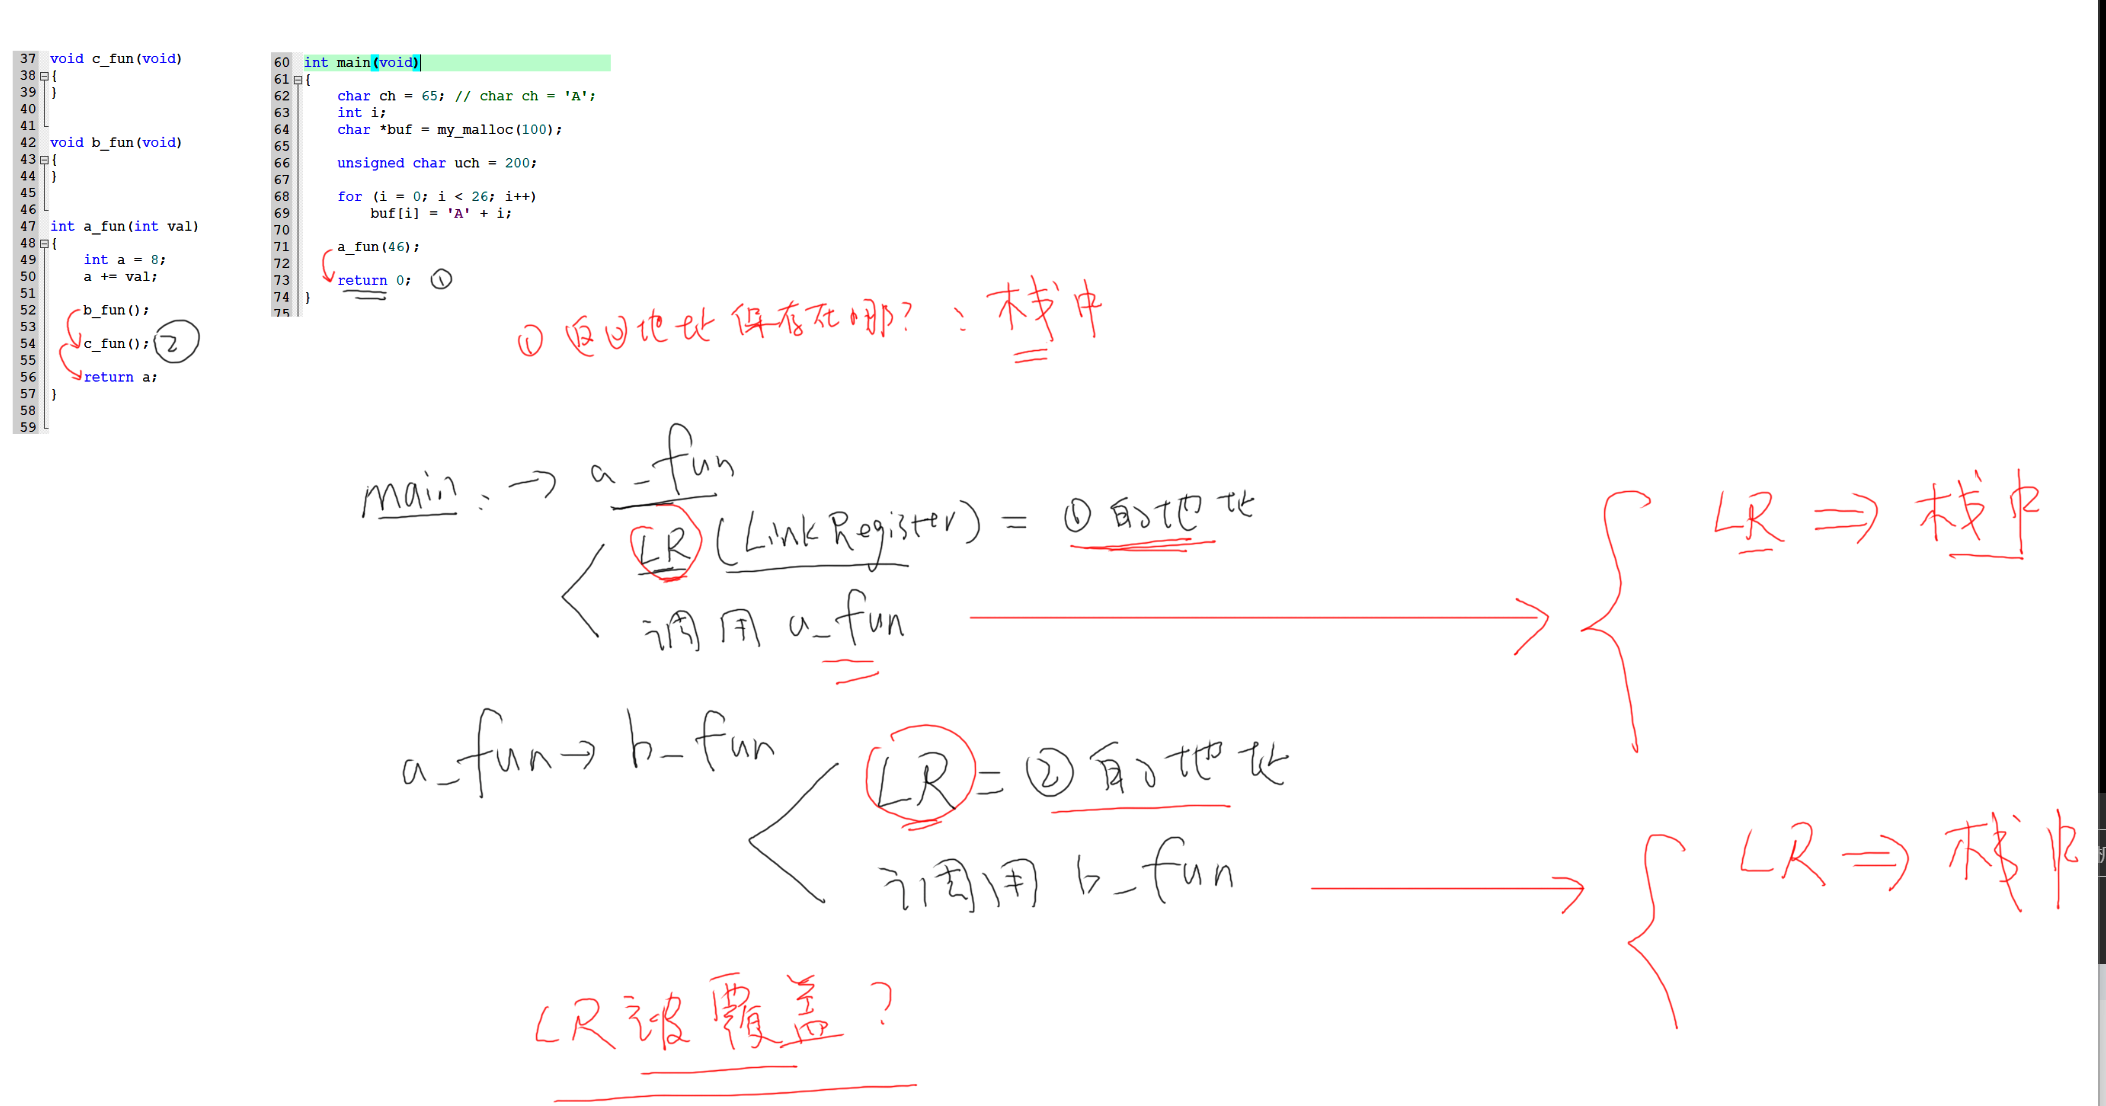 37 void c_fun(void)
38 {
39 }
40
41
42 void b_fun(void)
43 {
44 }
45
46
47 int a_fun(int val)
48 {
49 int a = 8;
50 a += val;
51
52 b_fun();
53
54 c_fun(); ②
55
56 return a;
57 }
58
59
60 int main(void)
61 {
62 char ch = 65; // char ch = 'A';
63 int i;
64 char *buf = my_malloc(100);
65
66 unsigned char uch = 200;
67
68 for (i = 0; i < 26; i++)
69 buf[i] = 'A' + i;
70
71 a_fun(46);
72
73 return 0; ①
74 }
75
① 返回地址保存在哪? : 栈中
main: → a_fun
LR (Link Register) = ①的地址
调用 a_fun
LR ⇒ 栈中
a_fun → b_fun
LR = ②的地址
调用 b_fun
LR ⇒ 栈中
LR被覆盖?